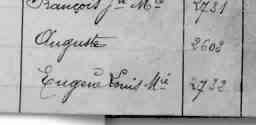 François Jn Mie 2731
Auguste 2602
Eugène Louis Mie 2732